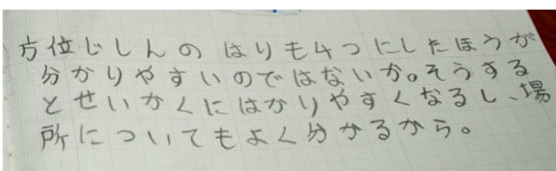 方位じしんのはりも4つにしたほうが
分かりやすいのではないか。そうする
とせいかくにはかりやすくなるし、場
所についてもよく分かるから。